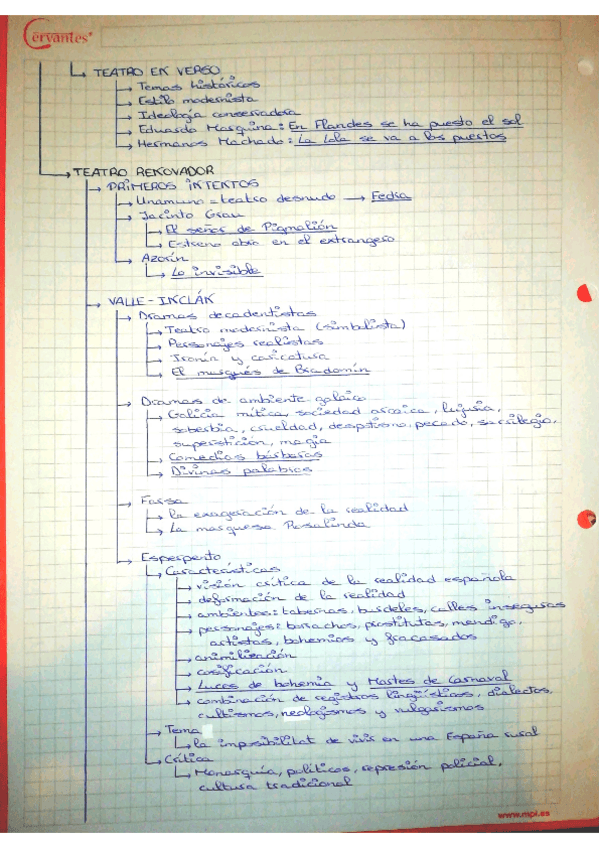 Cervantes
TEATRO EN VERSO
Temas históricos
Estilo modernista
Ideología conservadora
Eduardo Marquina: En Flandes se ha puesto el sol
Hermanos Machado: La Lola se va a los puertos
TEATRO RENOVADOR
PRIMEROS INTENTOS
Unamuno = teatro desnudo → Fedra
Jacinto Grau
El señor de Pigmalión
Estreno obra en el extrangero
Azorín
Lo invisible
VALLE-INCLÁN
Dramas decadentistas
Teatro modernista (simbolista)
Personajes realistas
Ironía y caricatura
El marqués de Bradomín
Dramas de ambiente galaico
Galicia mítica, sociedad arcaica, lujuria,
soberbia, crueldad, despotismo, pecado, sacrilegio,
superstición, magia
Comedias bárbaras
Divinas palabras
Farsa
la exageración de la realidad
La marquesa Rosalinda
Esperpento
Características
visión crítica de la realidad española
deformación de la realidad
ambientes: tabernas, burdeles, calles inseguras
personajes: borrachos, prostitutas, mendigo,
artistas, bohemios y fracasados
animilización
cosificación
Luces de bohemia y Martes de Carnaval
combinación de registros lingüísticos, dialectos,
cultismos, neologismos y vulgarismos
Tema
la imposibilitat de vivir en una España rural
Crítica
Monarquía, políticos, represión policial,
cultura tradicional
www.mpl.es